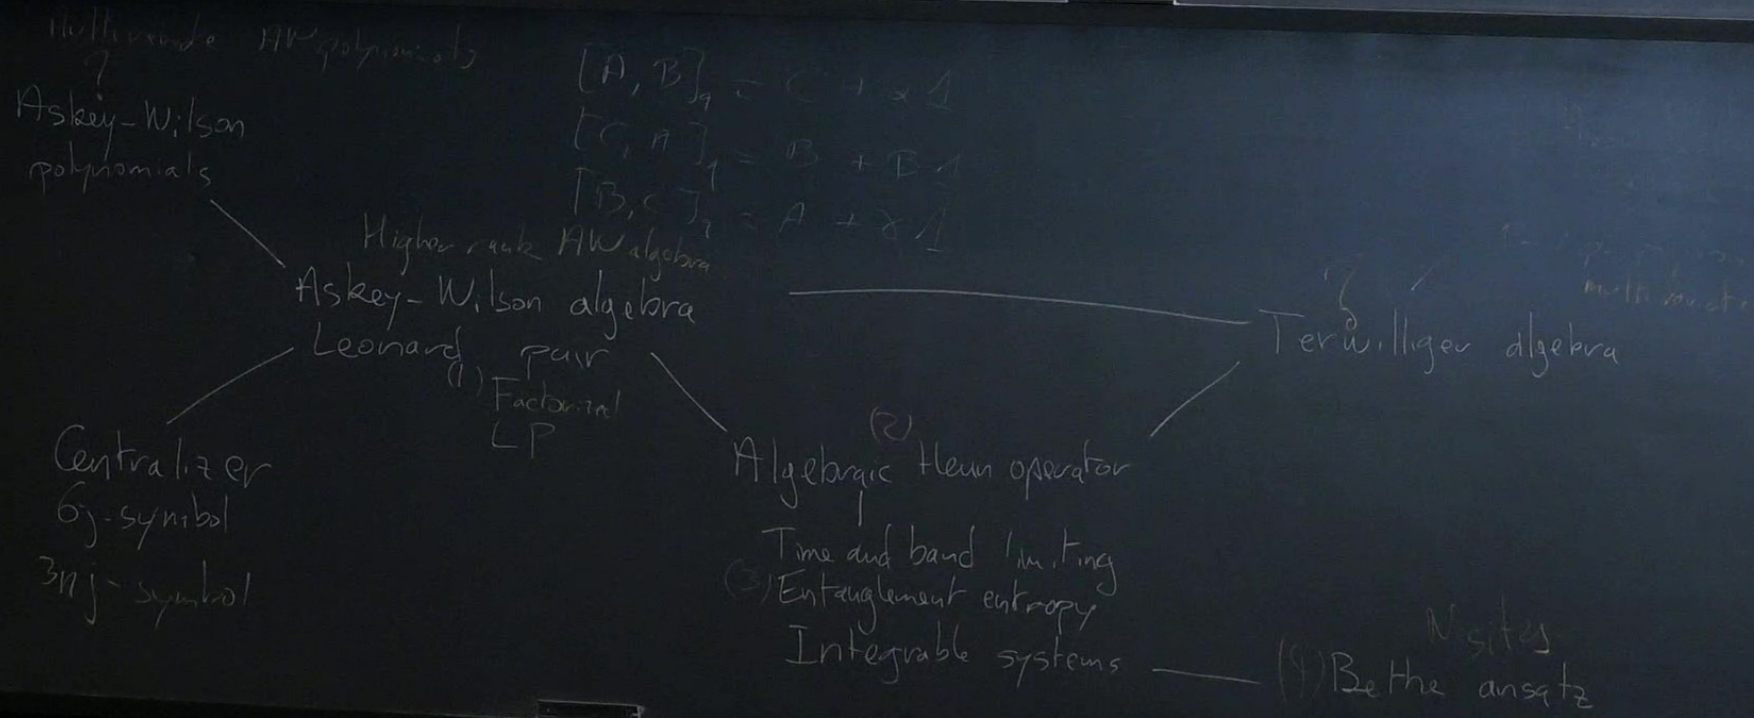 AW polynomials
?
Askey-Wilson
polynomials
[A, B]q = C + α 1
[C, A]q = B + β 1
[B, C]q = A + γ 1
Higher rank AW algebra
Askey-Wilson algebra
Leonard pair
(1) Factorized
LP
?
Terwilliger algebra
Centralizer
6j-symbol
3nj-symbol
(2)
Algebraic Heun operator
Time and band limiting
(3) Entanglement entropy
Integrable systems
N sites
(4) Bethe ansatz